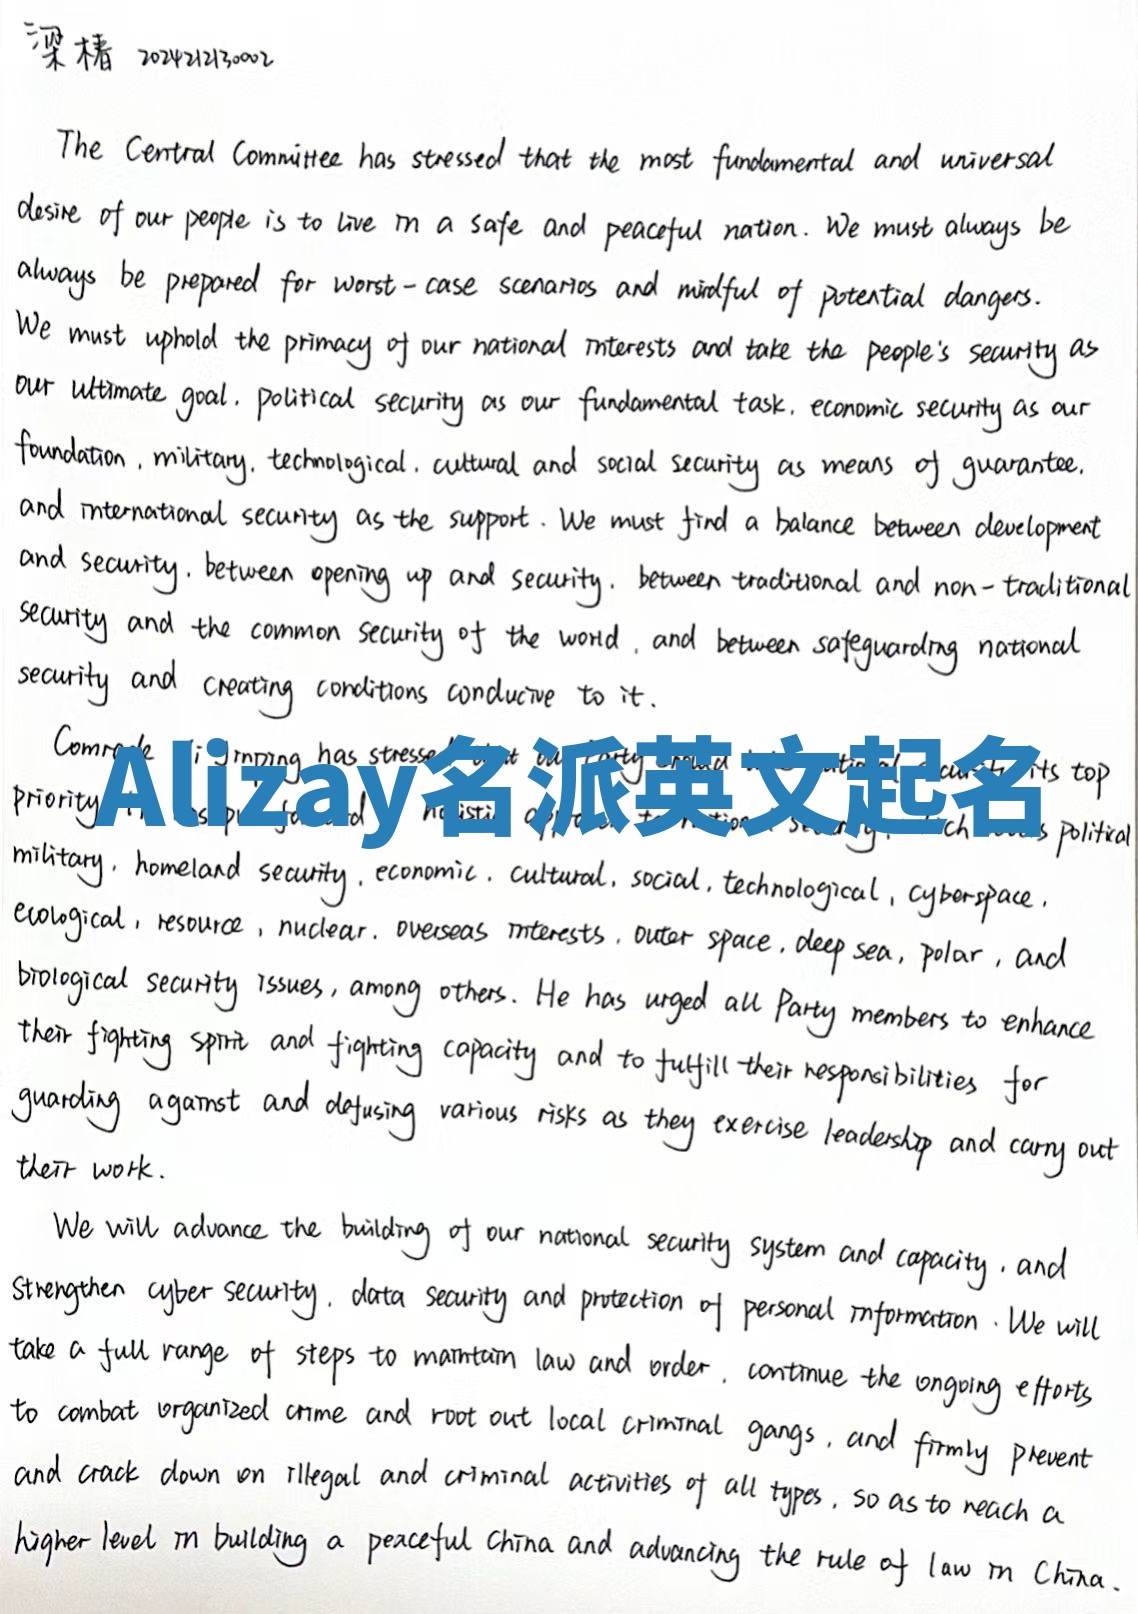 梁椿 2024212130002
The Central Committee has stressed that the most fundamental and universal
desire of our people is to live in a safe and peaceful nation. We must always be
always be prepared for worst-case scenarios and mindful of potential dangers.
We must uphold the primacy of our national interests and take the people's security as
our ultimate goal, political security as our fundamental task, economic security as our
foundation, military, technological, cultural and social security as means of guarantee,
and international security as the support. We must find a balance between development
and security, between opening up and security, between traditional and non-traditional
security and the common security of the world, and between safeguarding national
security and creating conditions conducive to it.
Comrade Jinping has stressed its top
Alizay名派英文起名
priority political
military, homeland security, economic, cultural, social, technological, cyberspace,
ecological, resource, nuclear, overseas interests, outer space, deep sea, polar, and
biological security issues, among others. He has urged all Party members to enhance
their fighting spirit and fighting capacity and to fulfill their responsibilities for
guarding against and defusing various risks as they exercise leadership and carry out
their work.
We will advance the building of our national security system and capacity, and
strengthen cyber security, data security and protection of personal information. We will
take a full range of steps to maintain law and order, continue the ongoing efforts
to combat organized crime and root out local criminal gangs, and firmly prevent
and crack down on illegal and criminal activities of all types, so as to reach a
higher level in building a peaceful China and advancing the rule of law in China.